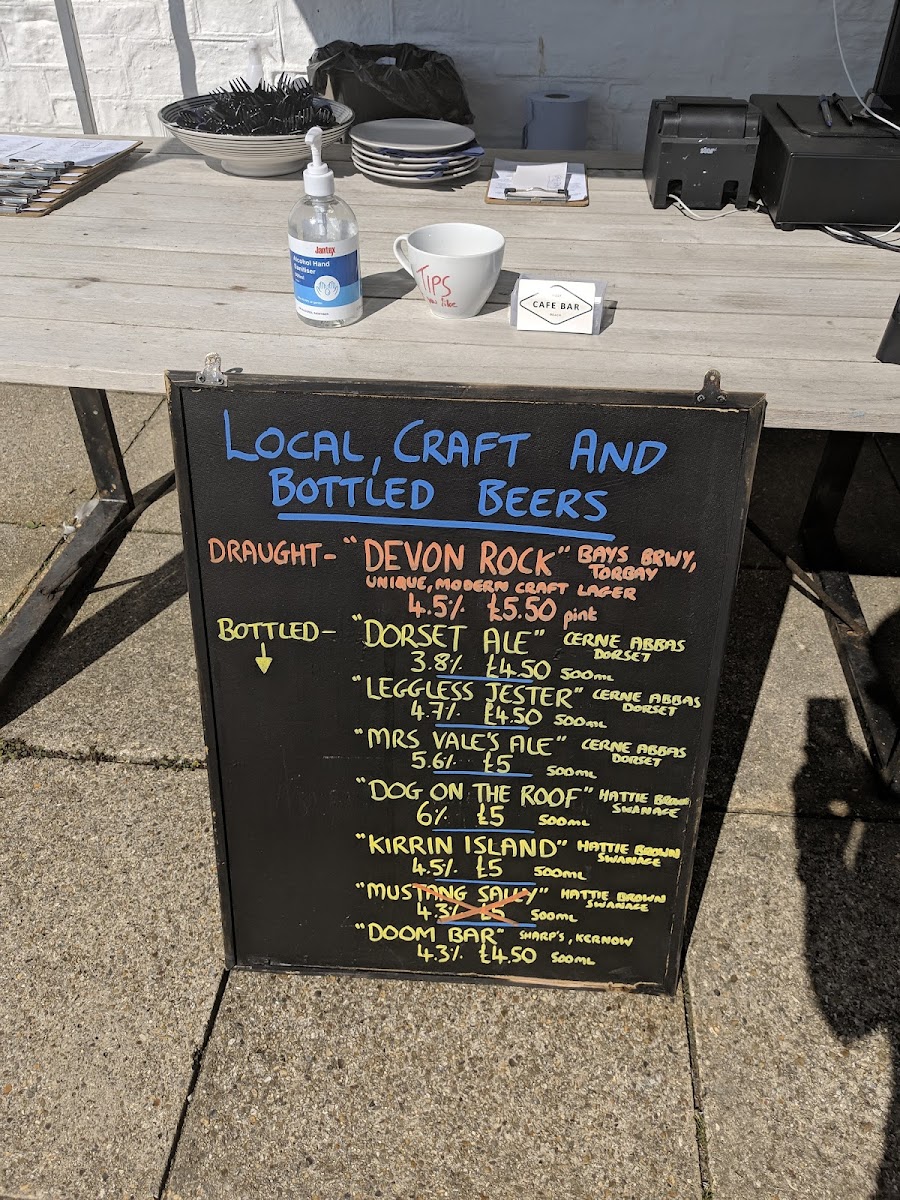 star
Jantex
Alcohol Hand
Sanitiser
TIPS
you like
CAFE BAR
LOCAL, CRAFT AND
BOTTLED BEERS
DRAUGHT- "DEVON ROCK" BAYS BRWY,
TORBAY
UNIQUE, MODERN CRAFT LAGER
4.5% £5.50 pint
BOTTLED- "DORSET ALE" CERNE ABBAS
DORSET
3.8% £4.50 500ML
"LEGGLESS JESTER" CERNE ABBAS
DORSET
4.7% £4.50 500ML
"MRS VALE'S ALE" CERNE ABBAS
DORSET
5.6% £5 500ML
"DOG ON THE ROOF" HATTIE BROWN
SWANAGE
6% £5 500ML
"KIRRIN ISLAND" HATTIE BROWN
SWANAGE
4.5% £5 500ML
"MUSTANG SALLY" HATTIE BROWN
SWANAGE
4.3% £5 500ML
"DOOM BAR" SHARP'S, KERNOW
4.3% £4.50 500ML